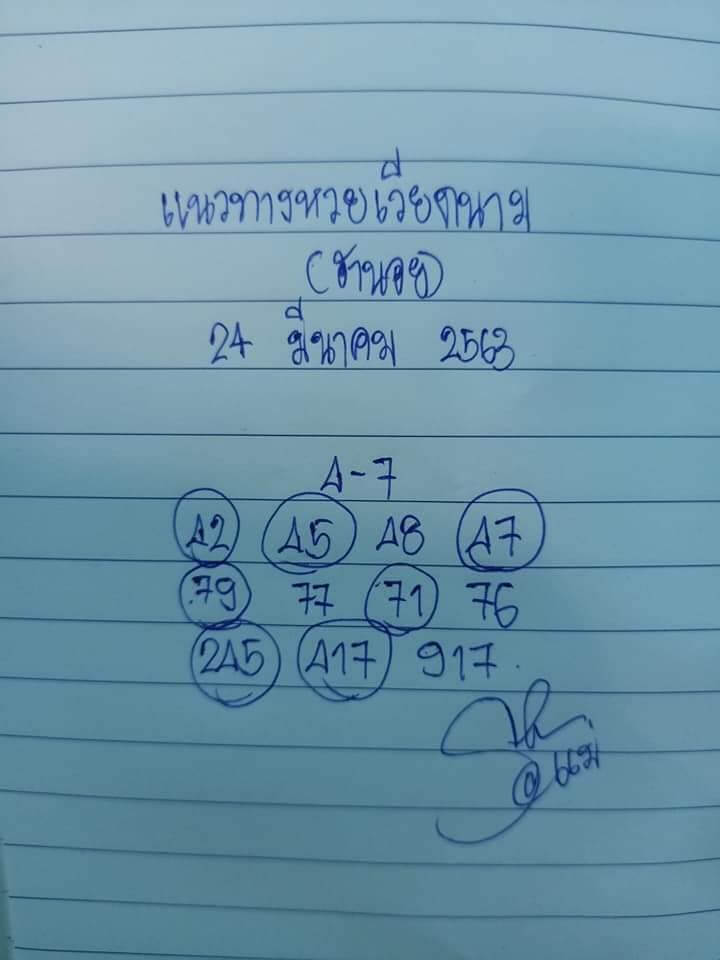 แนวทางหวยเวียดนาม
(ฮานอย)
24 มีนาคม 2563
4-7
42 45 48 47
79 77 71 76
245 417 917.
@แม่